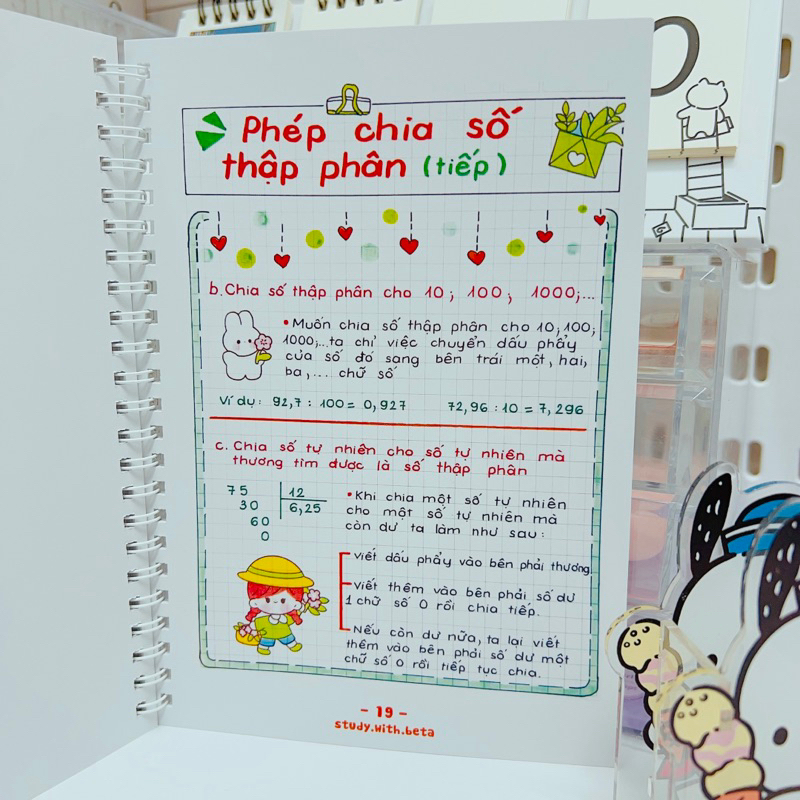 Phép chia số
thập phân (tiếp)
b. Chia số thập phân cho 10; 100; 1000;...
• Muốn chia số thập phân cho 10; 100;
1000;... ta chỉ việc chuyển dấu phẩy
của số đó sang bên trái một, hai,
ba,... chữ số
Ví dụ: 92,7 : 100 = 0,927 72,96 : 10 = 7,296
c. Chia số tự nhiên cho số tự nhiên mà
thương tìm được là số thập phân
75 12
30 6,25
60
0
• Khi chia một số tự nhiên
cho một số tự nhiên mà
còn dư ta làm như sau:
viết dấu phẩy vào bên phải thương
viết thêm vào bên phải số dư
1 chữ số 0 rồi chia tiếp.
Nếu còn dư nữa, ta lại viết
thêm vào bên phải số dư một
chữ số 0 rồi tiếp tục chia.
- 19 -
study.with.beta